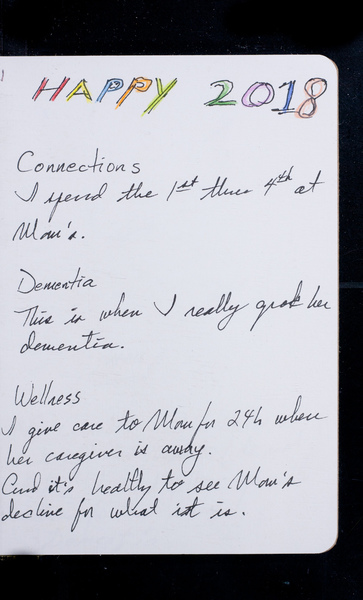 HAPPY 2018
Connections
I spend the 1st thru 4th at
Mom's.
Dementia
This is when I really grok her
dementia.
Wellness
I give care to Mom for 24h when
her caregiver is away.
And it's healthy to see Mom's
decline for what it is.